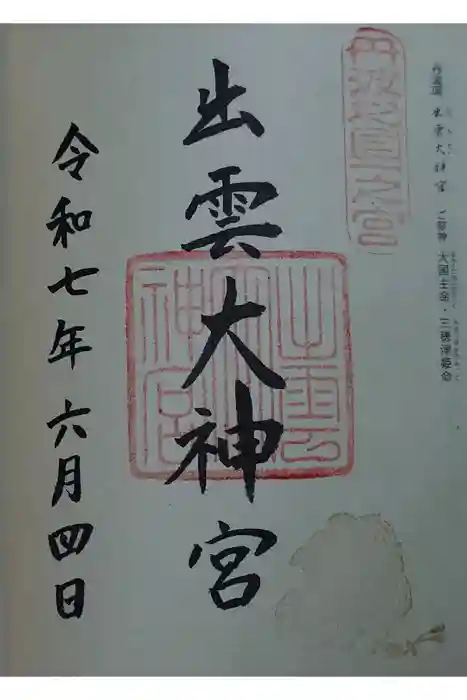 丹波国 出雲大神宮 ご祭神 大国主命・三穂津姫命
丹波國一之宮
出雲大神宮
出雲大神宮
令和七年 六月四日